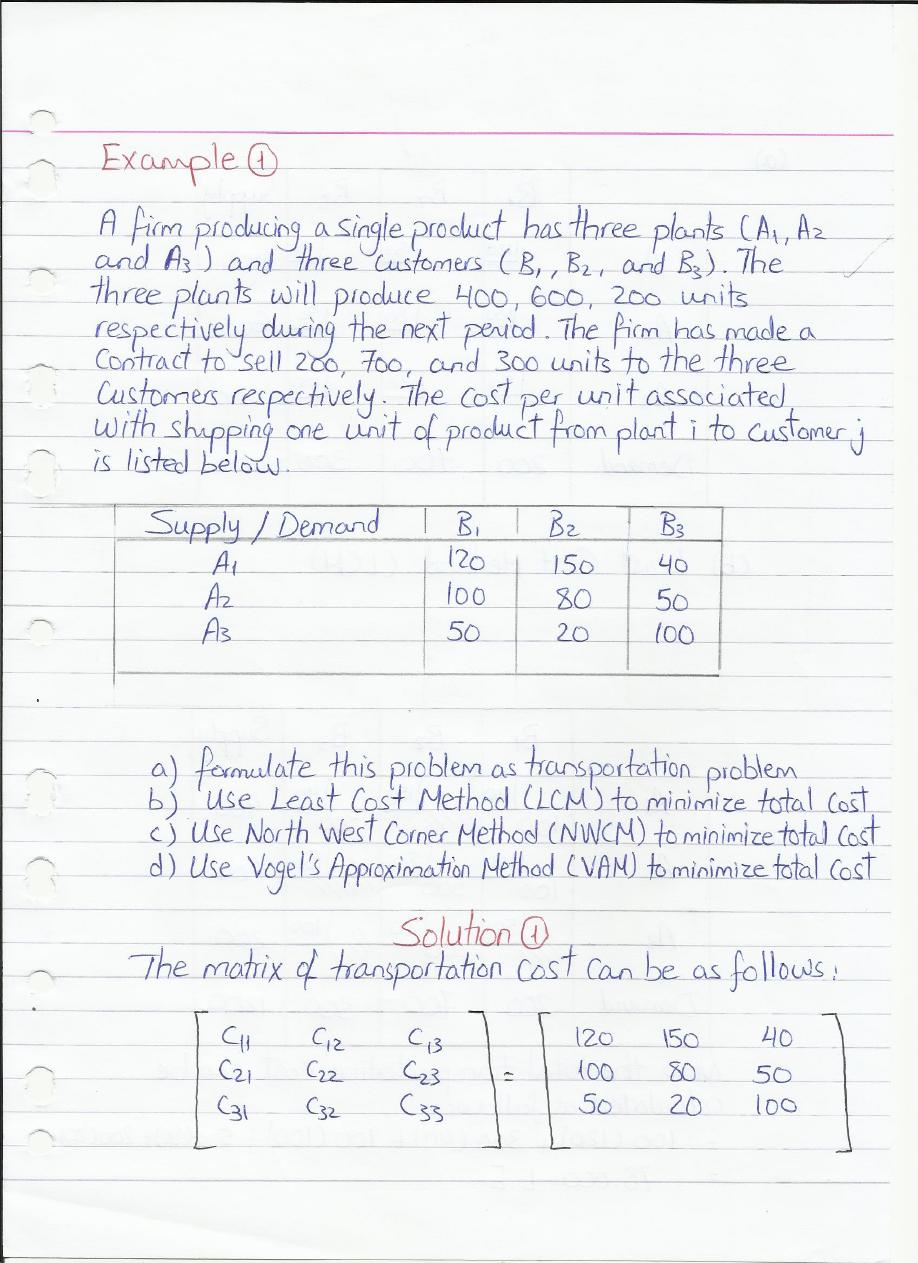 Example ①
A firm producing a single product has three plants (A₁, A₂
and A₃) and three customers (B₁, B₂, and B₃). The
three plants will produce 400, 600, 200 units
respectively during the next period. The firm has made a
Contract to sell 200, 700, and 300 units to the three
Customers respectively. The cost per unit associated
with shipping one unit of product from plant i to customer j
is listed below.
Supply / Demand B₁ B₂ B₃
A₁ 120 150 40
A₂ 100 80 50
A₃ 50 20 100
a) formulate this problem as transportation problem
b) Use Least Cost Method (LCM) to minimize total Cost
c) Use North West Corner Method (NWCM) to minimize total Cost
d) Use Vogel's Approximation Method (VAM) to minimize total Cost
Solution ①
The matrix of transportation cost can be as follows:
C₁₁ C₁₂ C₁₃ = 120 150 40
C₂₁ C₂₂ C₂₃ 100 80 50
C₃₁ C₃₂ C₃₃ 50 20 100